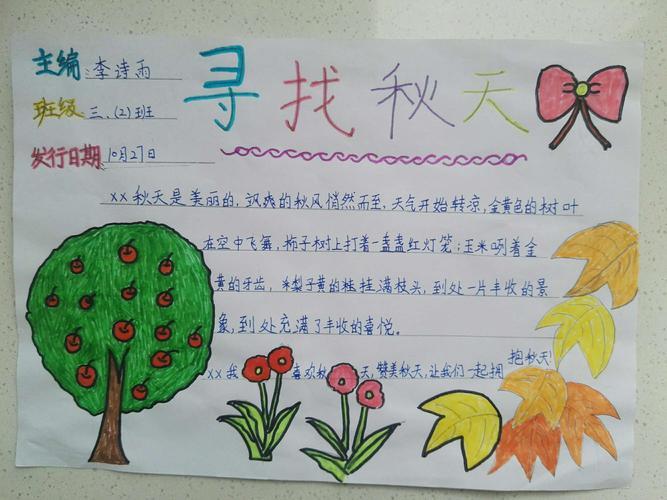 寻找秋天
主编 李诗雨
班级 三.(2)班
发行日期 10月27日
××秋天是美丽的,飒爽的秋风悄然而至,天气开始转凉,金黄色的树叶
在空中飞舞,柿子树上打着一盏盏红灯笼;玉米咧着金
黄的牙齿,梨子黄的挂满枝头,到处一片丰收的景
象,到处充满了丰收的喜悦。
××我 喜欢秋 天,赞美秋天,让我们一起拥
抱秋天!